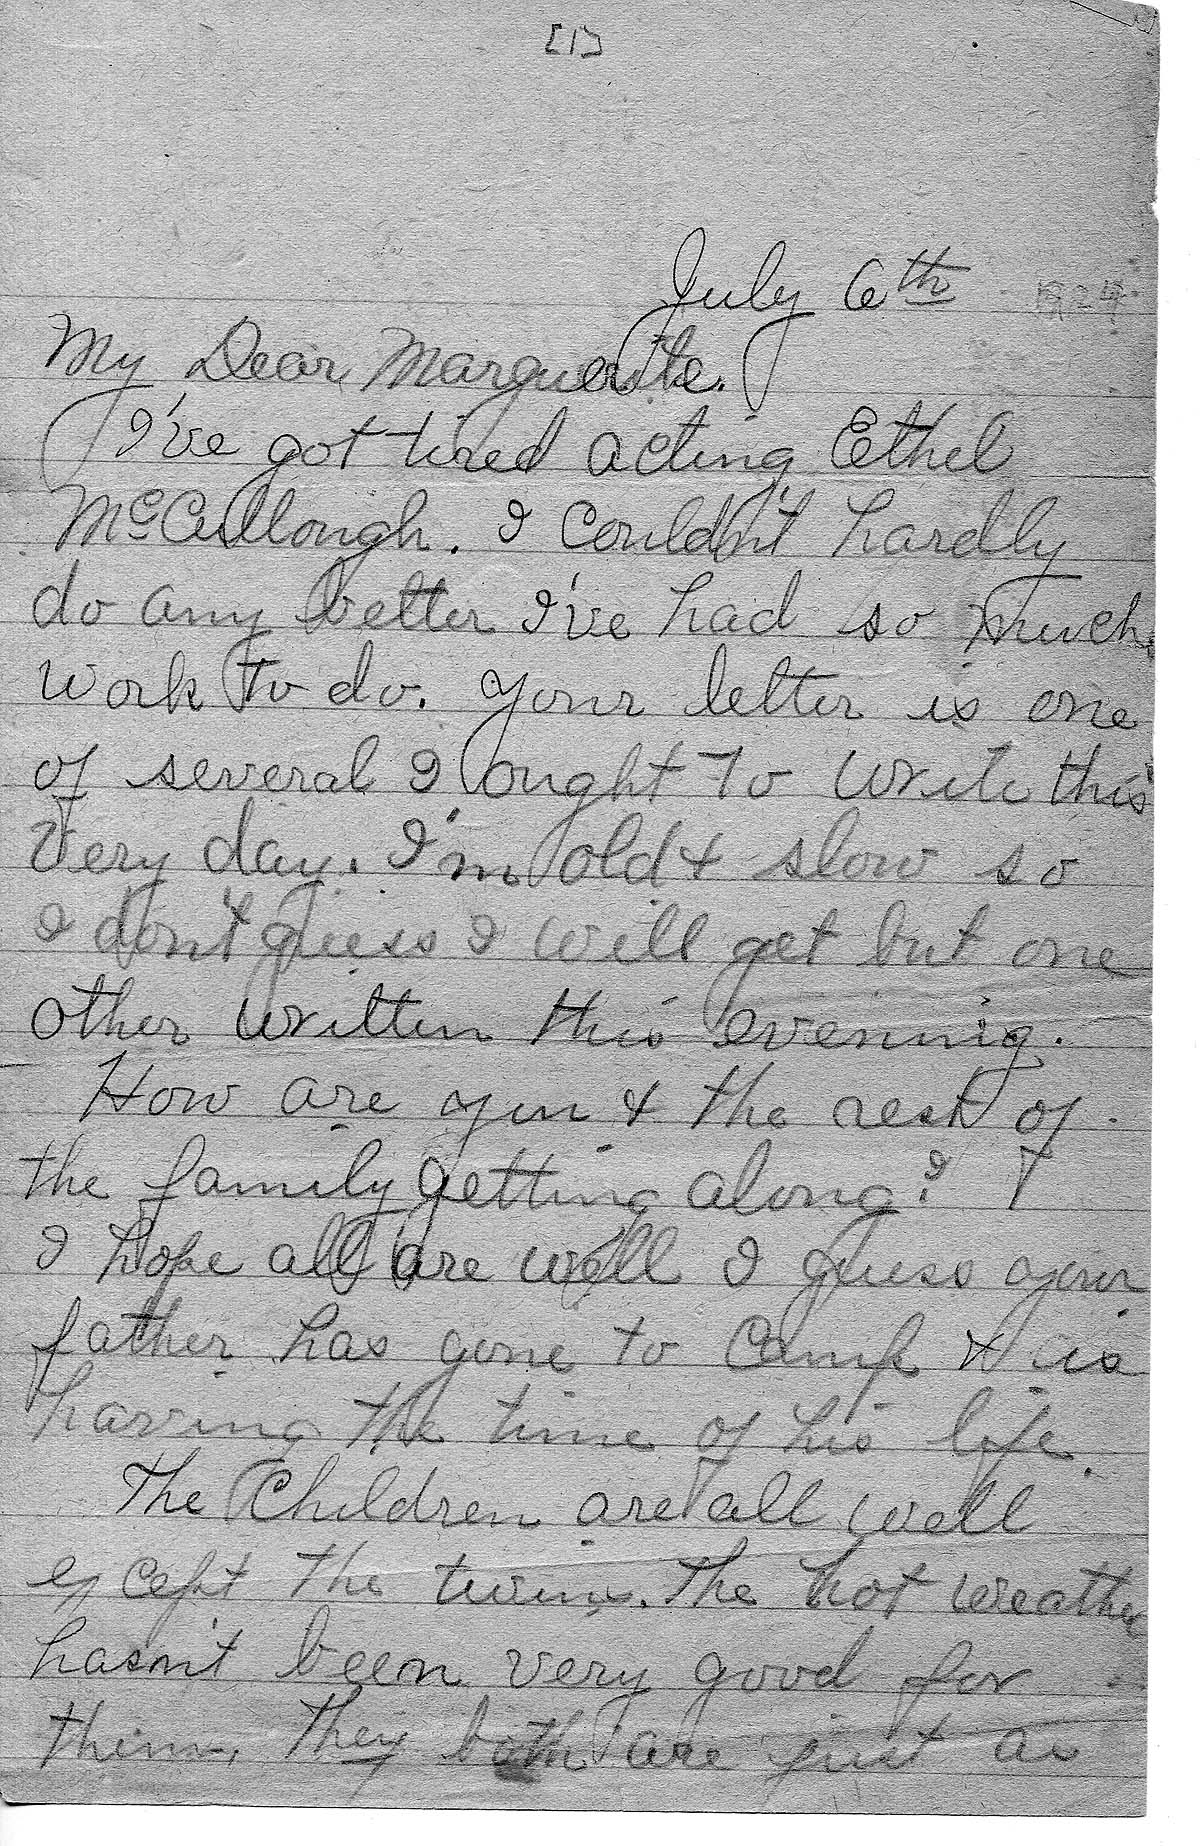 [1]
July 6th 1924
My Dear Marguerite.
I've got tired acting Ethel
McCullough. I couldn't hardly
do any better I've had so much
work to do. Your letter is one
of several I ought to write this
very day. I'm old & slow so
I don't guess I will get but one
other written this evening.
How are you & the rest of
the family getting along?
I hope all are well I guess your
father has gone to Camp & is
having the time of his life.
The Children are all well
except the twins. The hot weather
hasn't been very good for
them, They both are just as